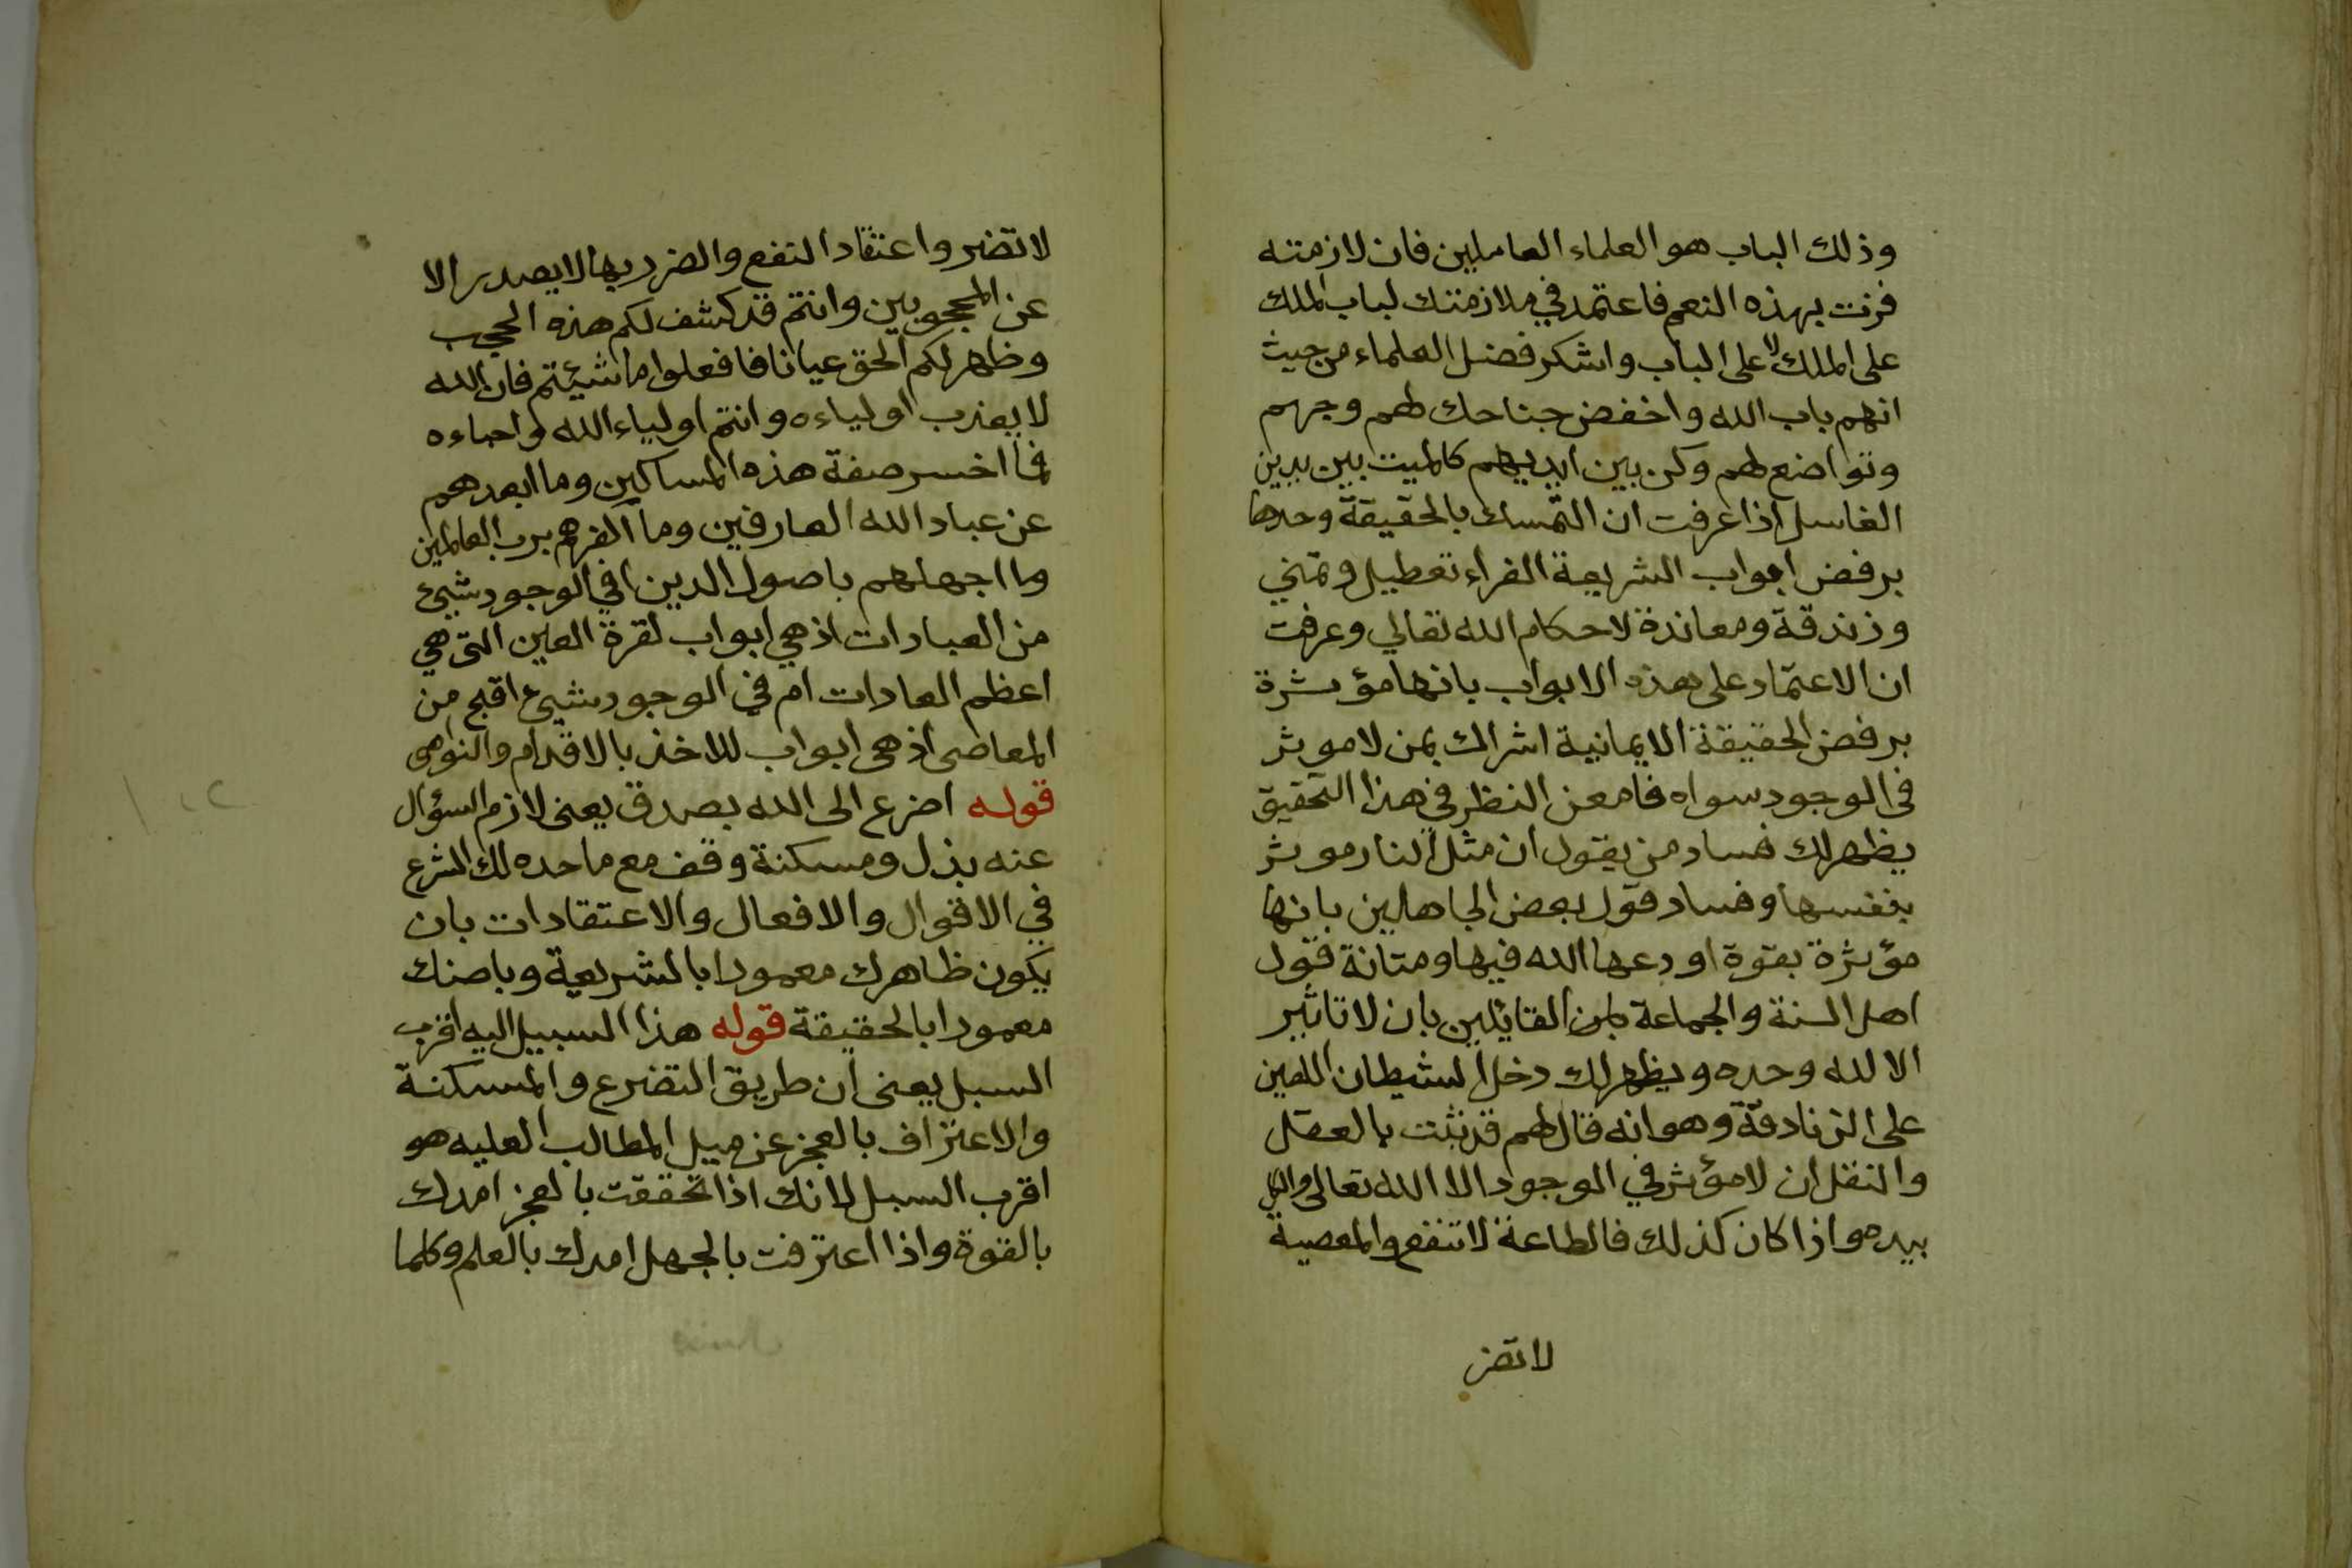 وذلك الباب هو العلماء العاملين فان لازمته
فزت بهذه النعم فاعتمد في ملازمتك لباب الملك
على الملك لا على الباب واشكر فضل العلماء من حيث
انهم باب الله واخفض جناحك لهم وجهم
وتواضع لهم وكن بين ايديهم كالميت بين يدين
الغاسل اذا عرفت ان التمسك بالحقيقة وحدها
برفض ابواب الشريعة الغراء تعطيل وتمني
وزندقة ومعاندة لاحكام الله تعالي وعرفت
ان الاعتماد على هذه الابواب بانها مؤثرة
برفض الحقيقة الايمانية اشراك بمن لا موثر
في الوجود سواه فامعن النظر في هذا التحقيق
يظهر لك فساد من يقول ان مثل النار موثر
بنفسها وفساد قول بعض الجاهلين بانها
مؤثرة بقوة اودعها الله فيها ومتانة قول
اهل السنة والجماعة القايلين بان لا تاثير
الا لله وحده ويظهر لك دخل الشيطان اللعين
على الزنادقة وهو انه قال لهم قد ثبت بالعقل
والنقل ان لا مؤثر في الموجود الا الله تعالى والكل
بيده واذا كان كذلك فالطاعة لا تنفع والمعصية
لا تضر
لا تضر واعتقاد النفع والضرر بها لا يصدر الا
عن المحجوبين وانتم قد كشف لكم هذه الحجب
وظهر لكم الحق عيانا فافعلوا ما شيئتم فان الله
لا يعذب اولياءه وانتم اولياء الله واحباءه
فما اخسر صفة هذه المساكين وما ابعدهم
عن عباد الله العارفين وما اكفرهم برب العالمين
وما اجهلهم باصول الدين افي الوجود شيئ
من العبادات اذ هي ابواب لقرة العين التي هي
اعظم العادات ام في الوجود شيئ اقبح من
المعاصى اذ هى ابواب للاخذ بالاقدام والنواصى
قوله اضرع الى الله بصدق يعنى لازم السؤال
عنه بذل ومسكنة وقف مع ما حده لك الشرع
في الاقوال والافعال والاعتقادات بان
يكون ظاهرك معمورا بالشريعة وباطنك
معمورا بالحقيقة قوله هذا السبيل اليه اقرب
السبل يعنى ان طريق التضرع والمسكنة
والاعتراف بالعجز عن ميل المطالب العليه هو
اقرب السبل لانك اذا تحققت بالعجز امدك
بالقوة واذا اعترفت بالجهل امدك بالعلم وكلما